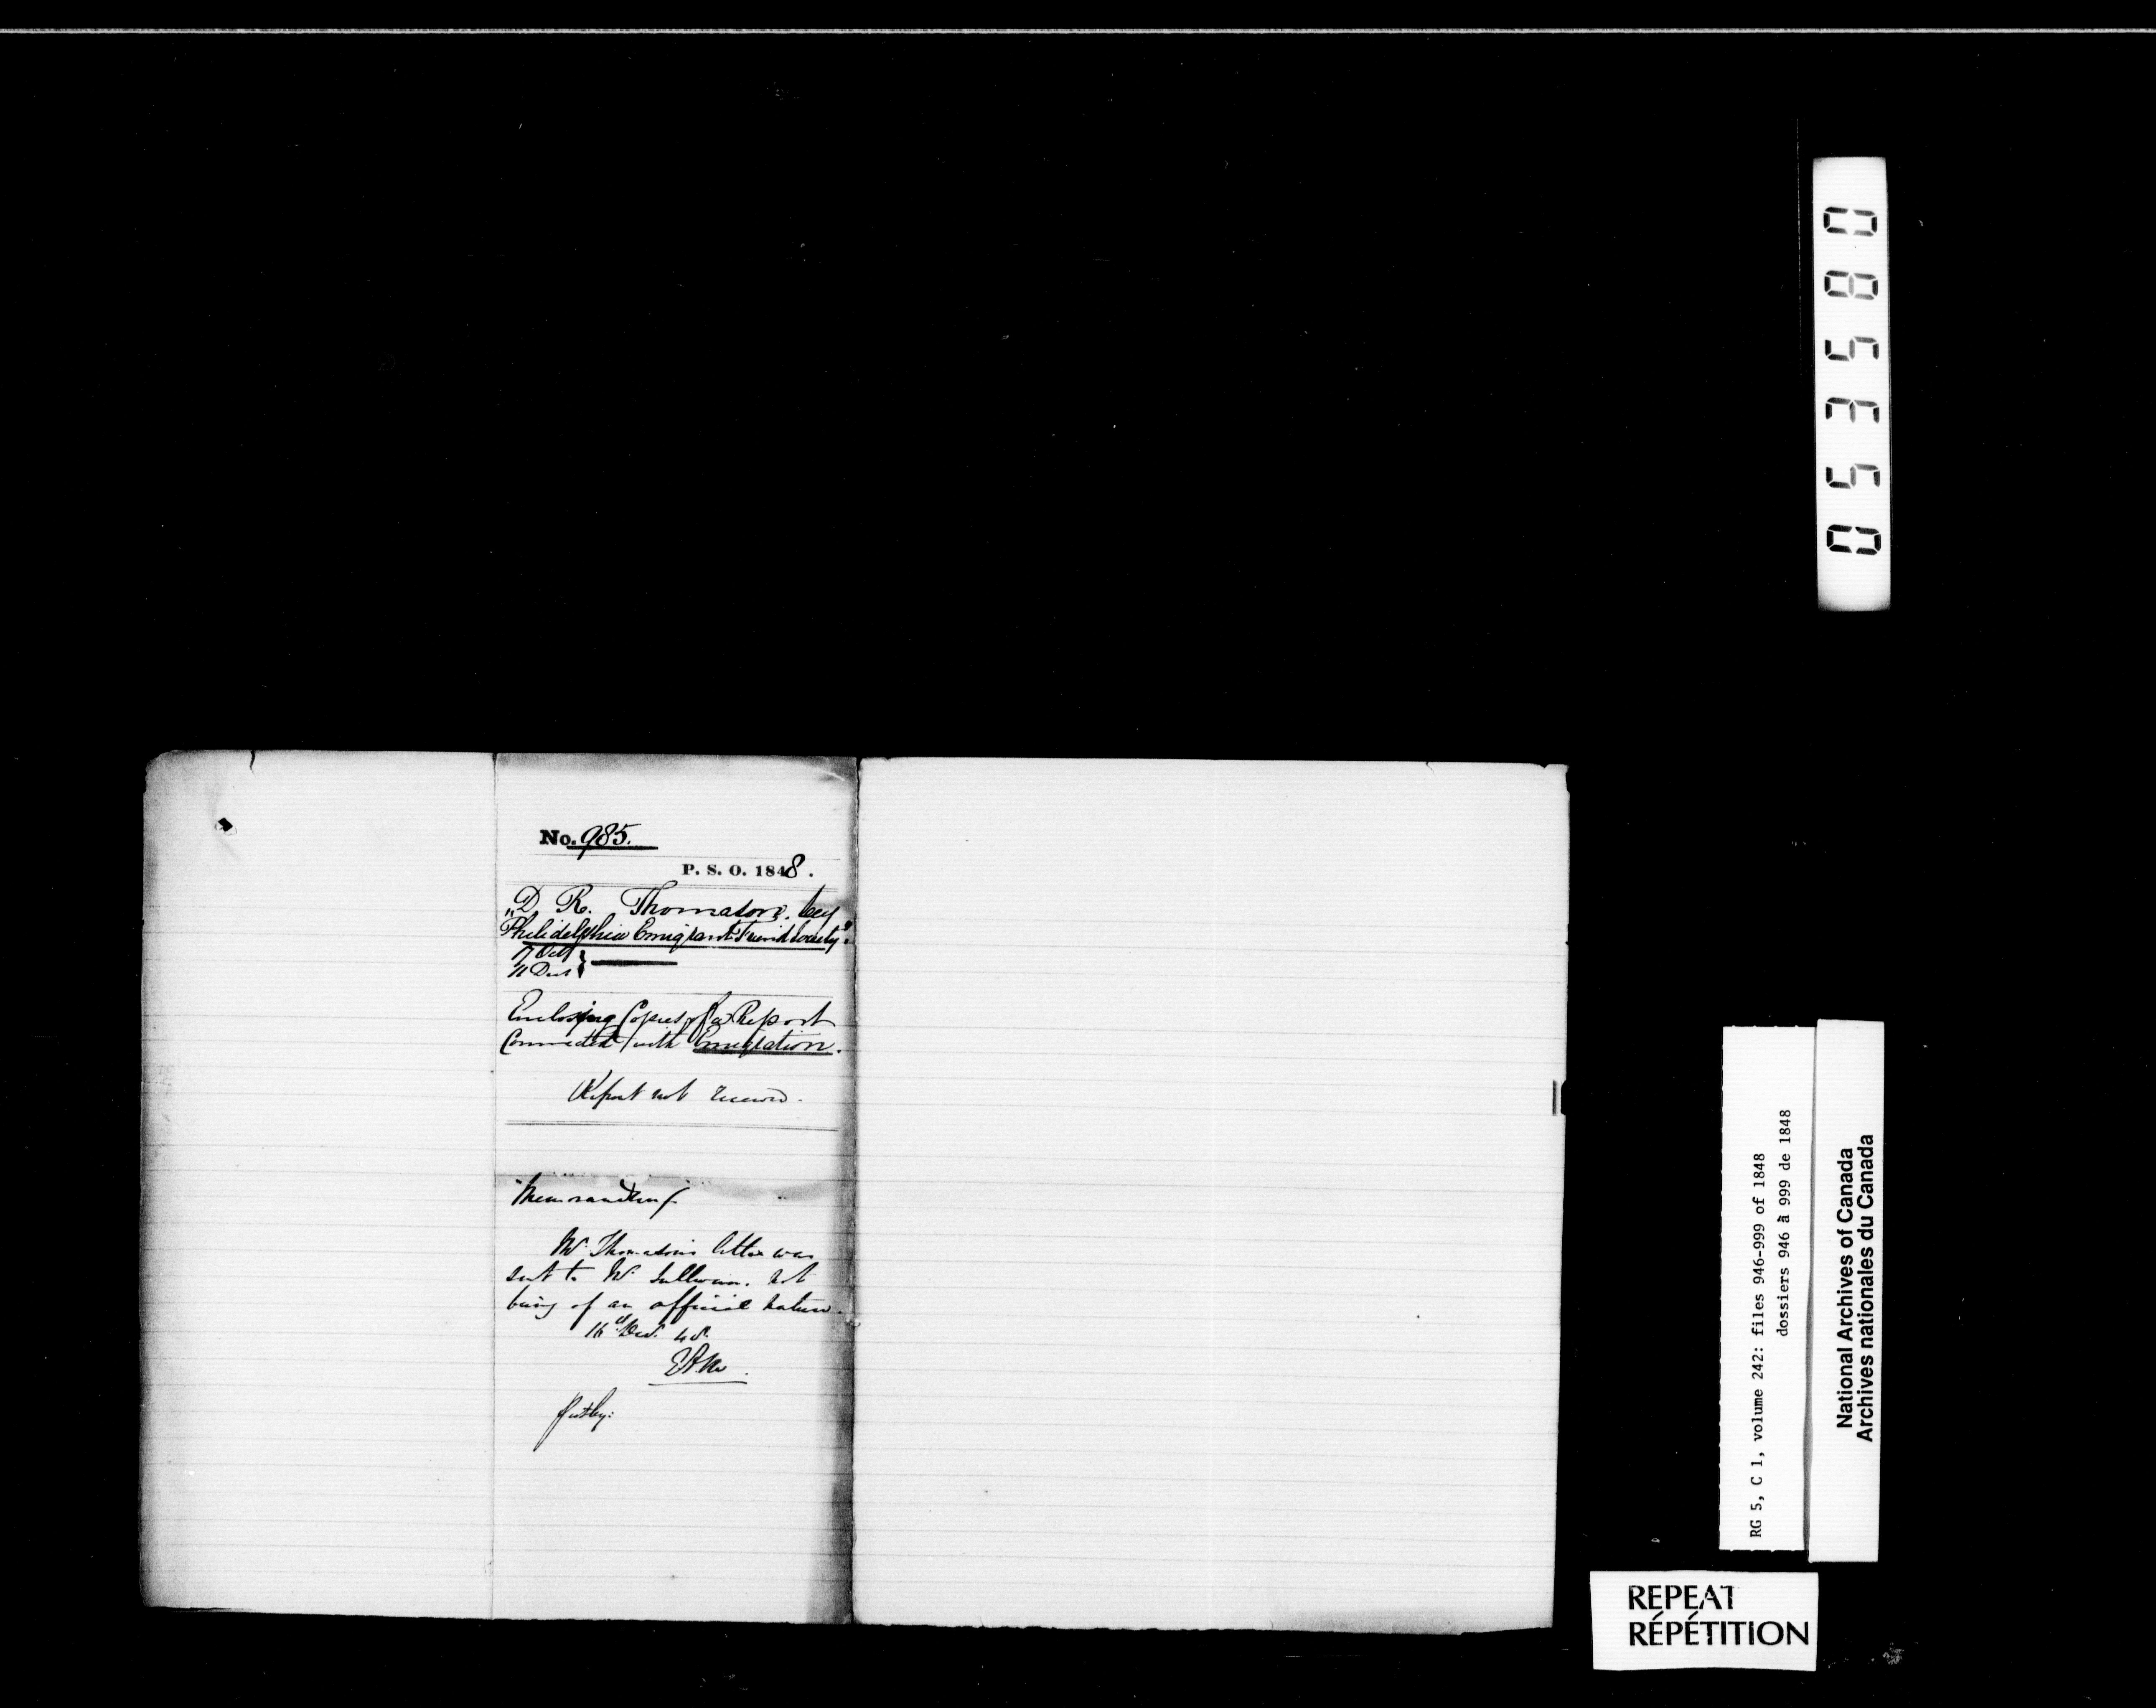 No. 985.
P. S. O. 1848.
"D R. Thomason. Secy
Philidelphia Emigrant's Friend Society"
17 Oct
11 Dec
Enclosing Copies of a Report
Connected with Emigration.
Report not received.
Memorandum
Mr Thomason's letter was
sent to Mr Sullivan. not
being of an official nature.
16 Dec. 48.
053580
RG 5, C 1, volume 242: files 946-999 of 1848
dossiers 946 à 999 de 1848
National Archives of Canada
Archives nationales du Canada
REPEAT
RÉPÉTITION